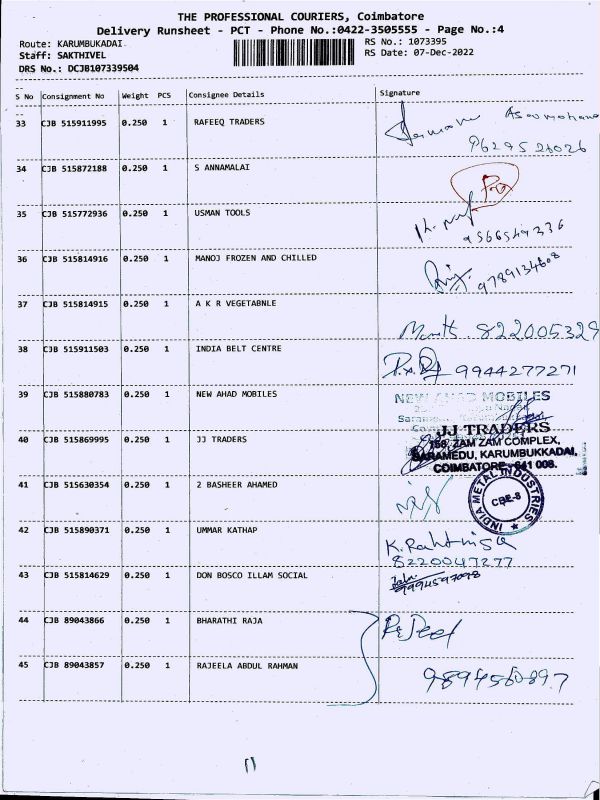 THE PROFESSIONAL COURIERS, Coimbatore
Delivery Runsheet - PCT - Phone No.:0422-3505555 - Page No.:4
Route: KARUMBUKADAI RS No.: 1073395
Staff: SAKTHIVEL RS Date: 07-Dec-2022
DRS No.: DCJB107339504
S No Consignment No Weight PCS Consignee Details Signature
33 CJB 515911995 0.250 1 RAFEEQ TRADERS
34 CJB 515872188 0.250 1 S ANNAMALAI
35 CJB 515772936 0.250 1 USMAN TOOLS
9566549336
36 CJB 515814916 0.250 1 MANOJ FROZEN AND CHILLED
9789134608
37 CJB 515814915 0.250 1 A K R VEGETABNLE
822005329
38 CJB 515911503 0.250 1 INDIA BELT CENTRE
9944277271
39 CJB 515880783 0.250 1 NEW AHAD MOBILES
NEW AHAD MOBILES
40 CJB 515869995 0.250 1 JJ TRADERS
JJ TRADERS
156, ZAM ZAM COMPLEX,
SARAMEDU, KARUMBUKKADAI,
COIMBATORE - 641 008.
41 CJB 515630354 0.250 1 2 BASHEER AHAMED
INDIA METAL INDUSTRIES
CBE-8
42 CJB 515890371 0.250 1 UMMAR KATHAP
8220047277
43 CJB 515814629 0.250 1 DON BOSCO ILLAM SOCIAL
44 CJB 89043866 0.250 1 BHARATHI RAJA
45 CJB 89043857 0.250 1 RAJEELA ABDUL RAHMAN